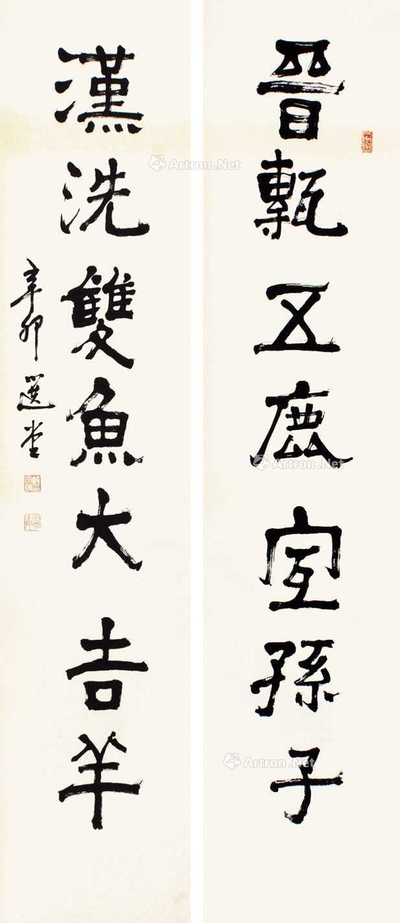 晉甎五鹿宜孫子
漢洗雙魚大吉羊
辛卯 選堂
Artron.Net
Artron.Net
Artron.Net
Artron.Net